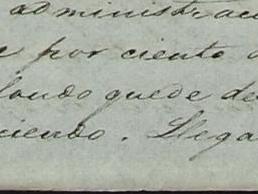 administrac
por ciento
quede de
ciendo. Llega